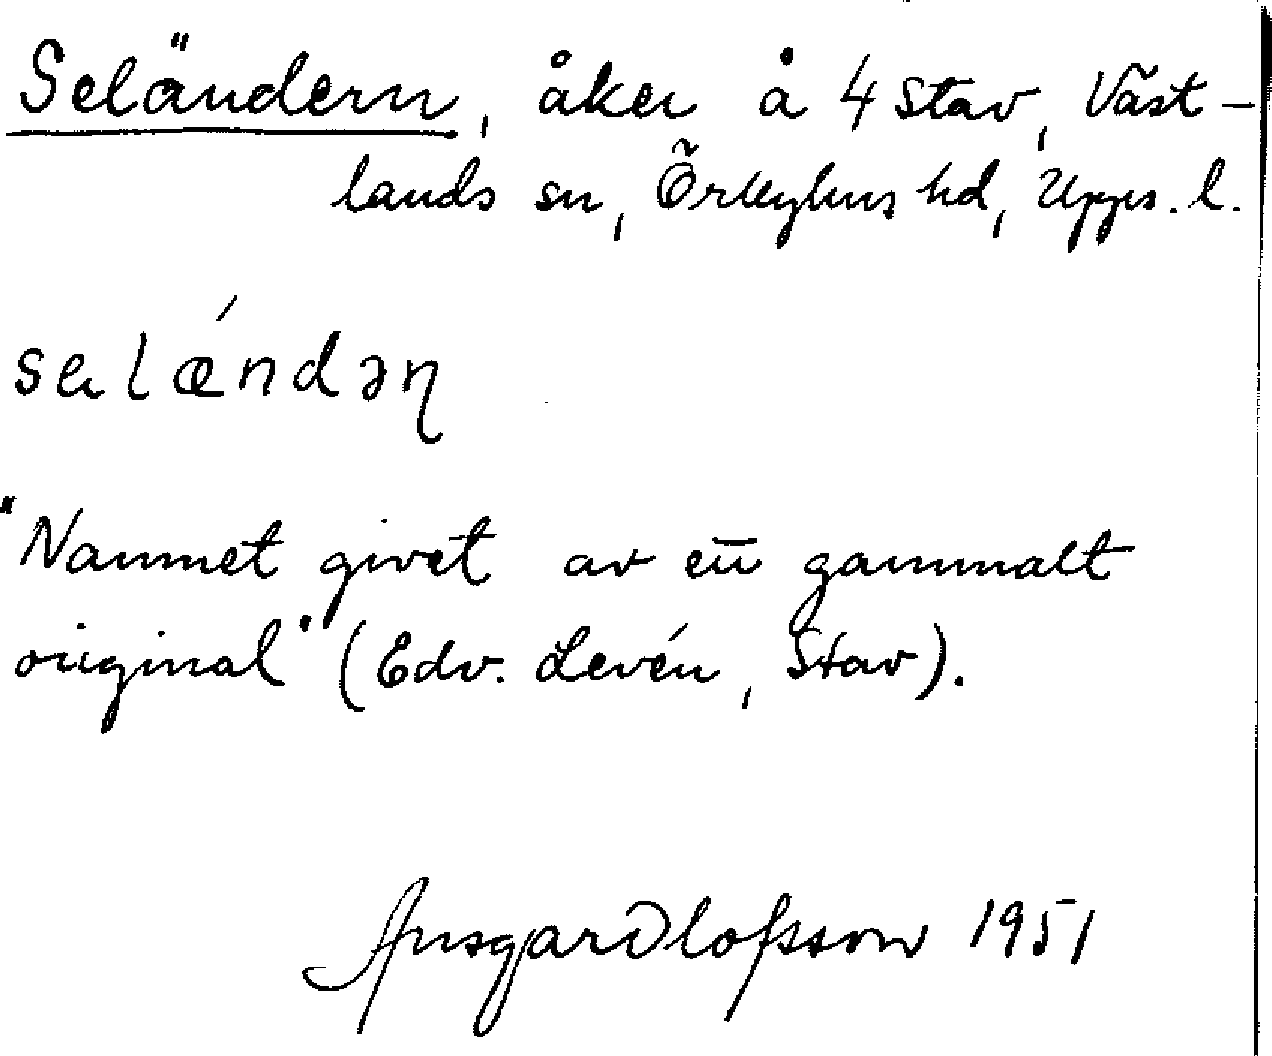 Seländern, åker å 4 Stav, Väst-
lands sn, Örbyhus hd, Upps. l.
selǽndəɳ
"Namnet givet av ett gammalt
original" (Edv. Levén, Stav).
Ansgar Olofsson 1951